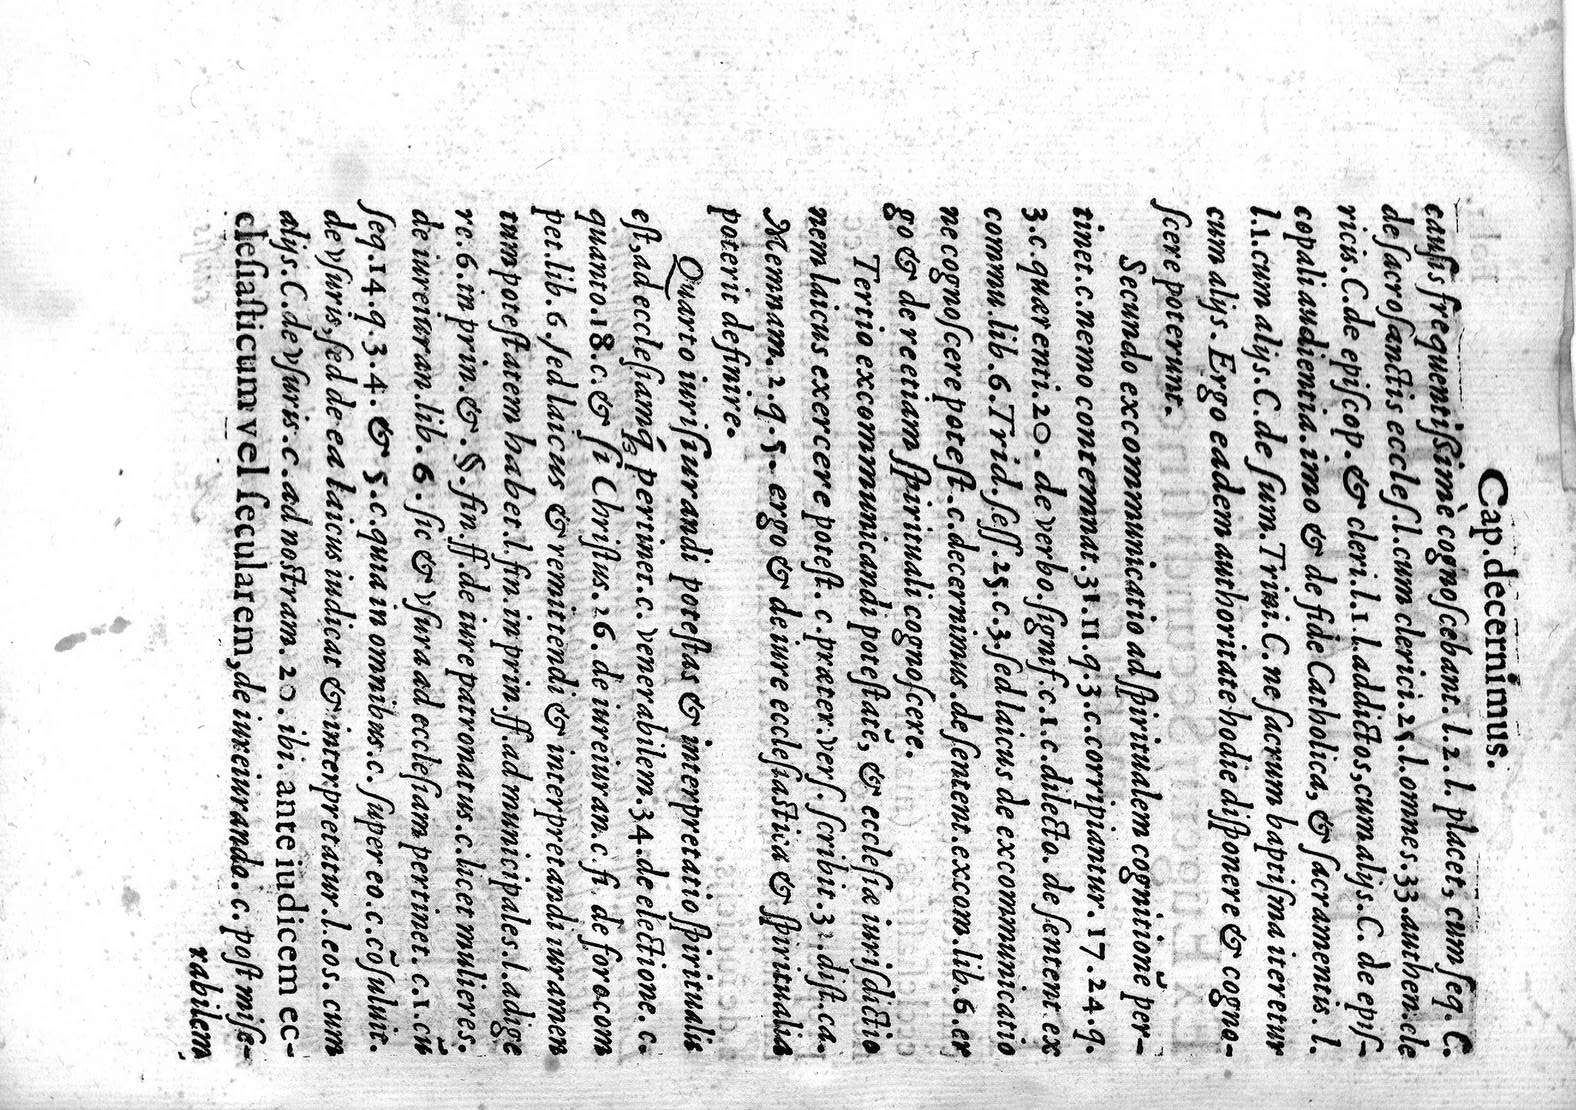 Cap. decernimus.
cauſis frequentiſsimè cognoſcebant. l. 2. l. placet, cum ſeq. C.
de ſacroſanctis eccleſ. l. cum clerici. 25. l. omnes. 33. authen. cle
ricis. C. de epiſcop. & cleri. l. 1 l. addictos, cum alijs. C. de epiſ-
copali audientia. imo & de fide Catholica, & ſacramentis. l.
l. 1. cum alijs. C. de ſum. Trini. C. ne ſacrum baptiſma iteretur
cum alijs. Ergo eadem authoritate hodie diſponere & cogno-
ſcere poterunt.
Secundo excommunicatio ad ſpiritualem cognitionẽ per-
tinet. c. nemo contemnat. 31. 11. q. 3. c. corripiantur. 17. 24. q.
3. c. quærenti. 20. de verbo. ſignif. c. 1. c. dilecto. de ſentent. ex
commu. lib. 6. Trid. ſeſſ. 25. c. 3. ſed laicus de excommunicatio
ne cognoſcere poteſt. c. decernimus. de ſentent. excom. lib. 6. er
go & de re etiam ſpirituali cognoſcere.
Tertio excommunicandi poteſtatẽ, & eccleſiæ iuriſdictio
nem laicus exercere poteſt. c. præter. verſ. ſcribit. 32. diſt. ca.
Memnam. 2. q. 5. ergo & de iure eccleſiaſtica & ſpiritualia
poterit definire.
Quarto iuriſiurandi poteſtas & interpretatio ſpiritualis
eſt, ad eccleſiamq́; pertinet. c. venerabilem. 34. de electione. c.
quanto. 18. c. & ſi Chriſtus. 26. de iureiuran. c. fi. de foro com
pet. lib. 6. ſed laicus & remittendi & interpretandi iuramen
tum poteſtatem habet. l. fin. in prin. ff. ad municipales. l. adige
re. 6. in prin. & . §. fin. ff. de iure patronatus. c. licet mulieres.
de iureiuran. lib. 6. ſic & vſura ad eccleſiam pertinet. c. 1. cũ
ſeq. 14. q. 3. 4. & 5. c. quia in omnibus. c. ſuper eo. c. cõſuluit.
de vſuris, ſed de ea laicus iudicat & interpretatur. l. eos. cum
alijs. C. de vſuris. c. ad noſtram. 20. ibi. ante iudicem ec-
cleſiaſticum vel ſecularem, de iureiurando. c. poſt miſe-
rabilem